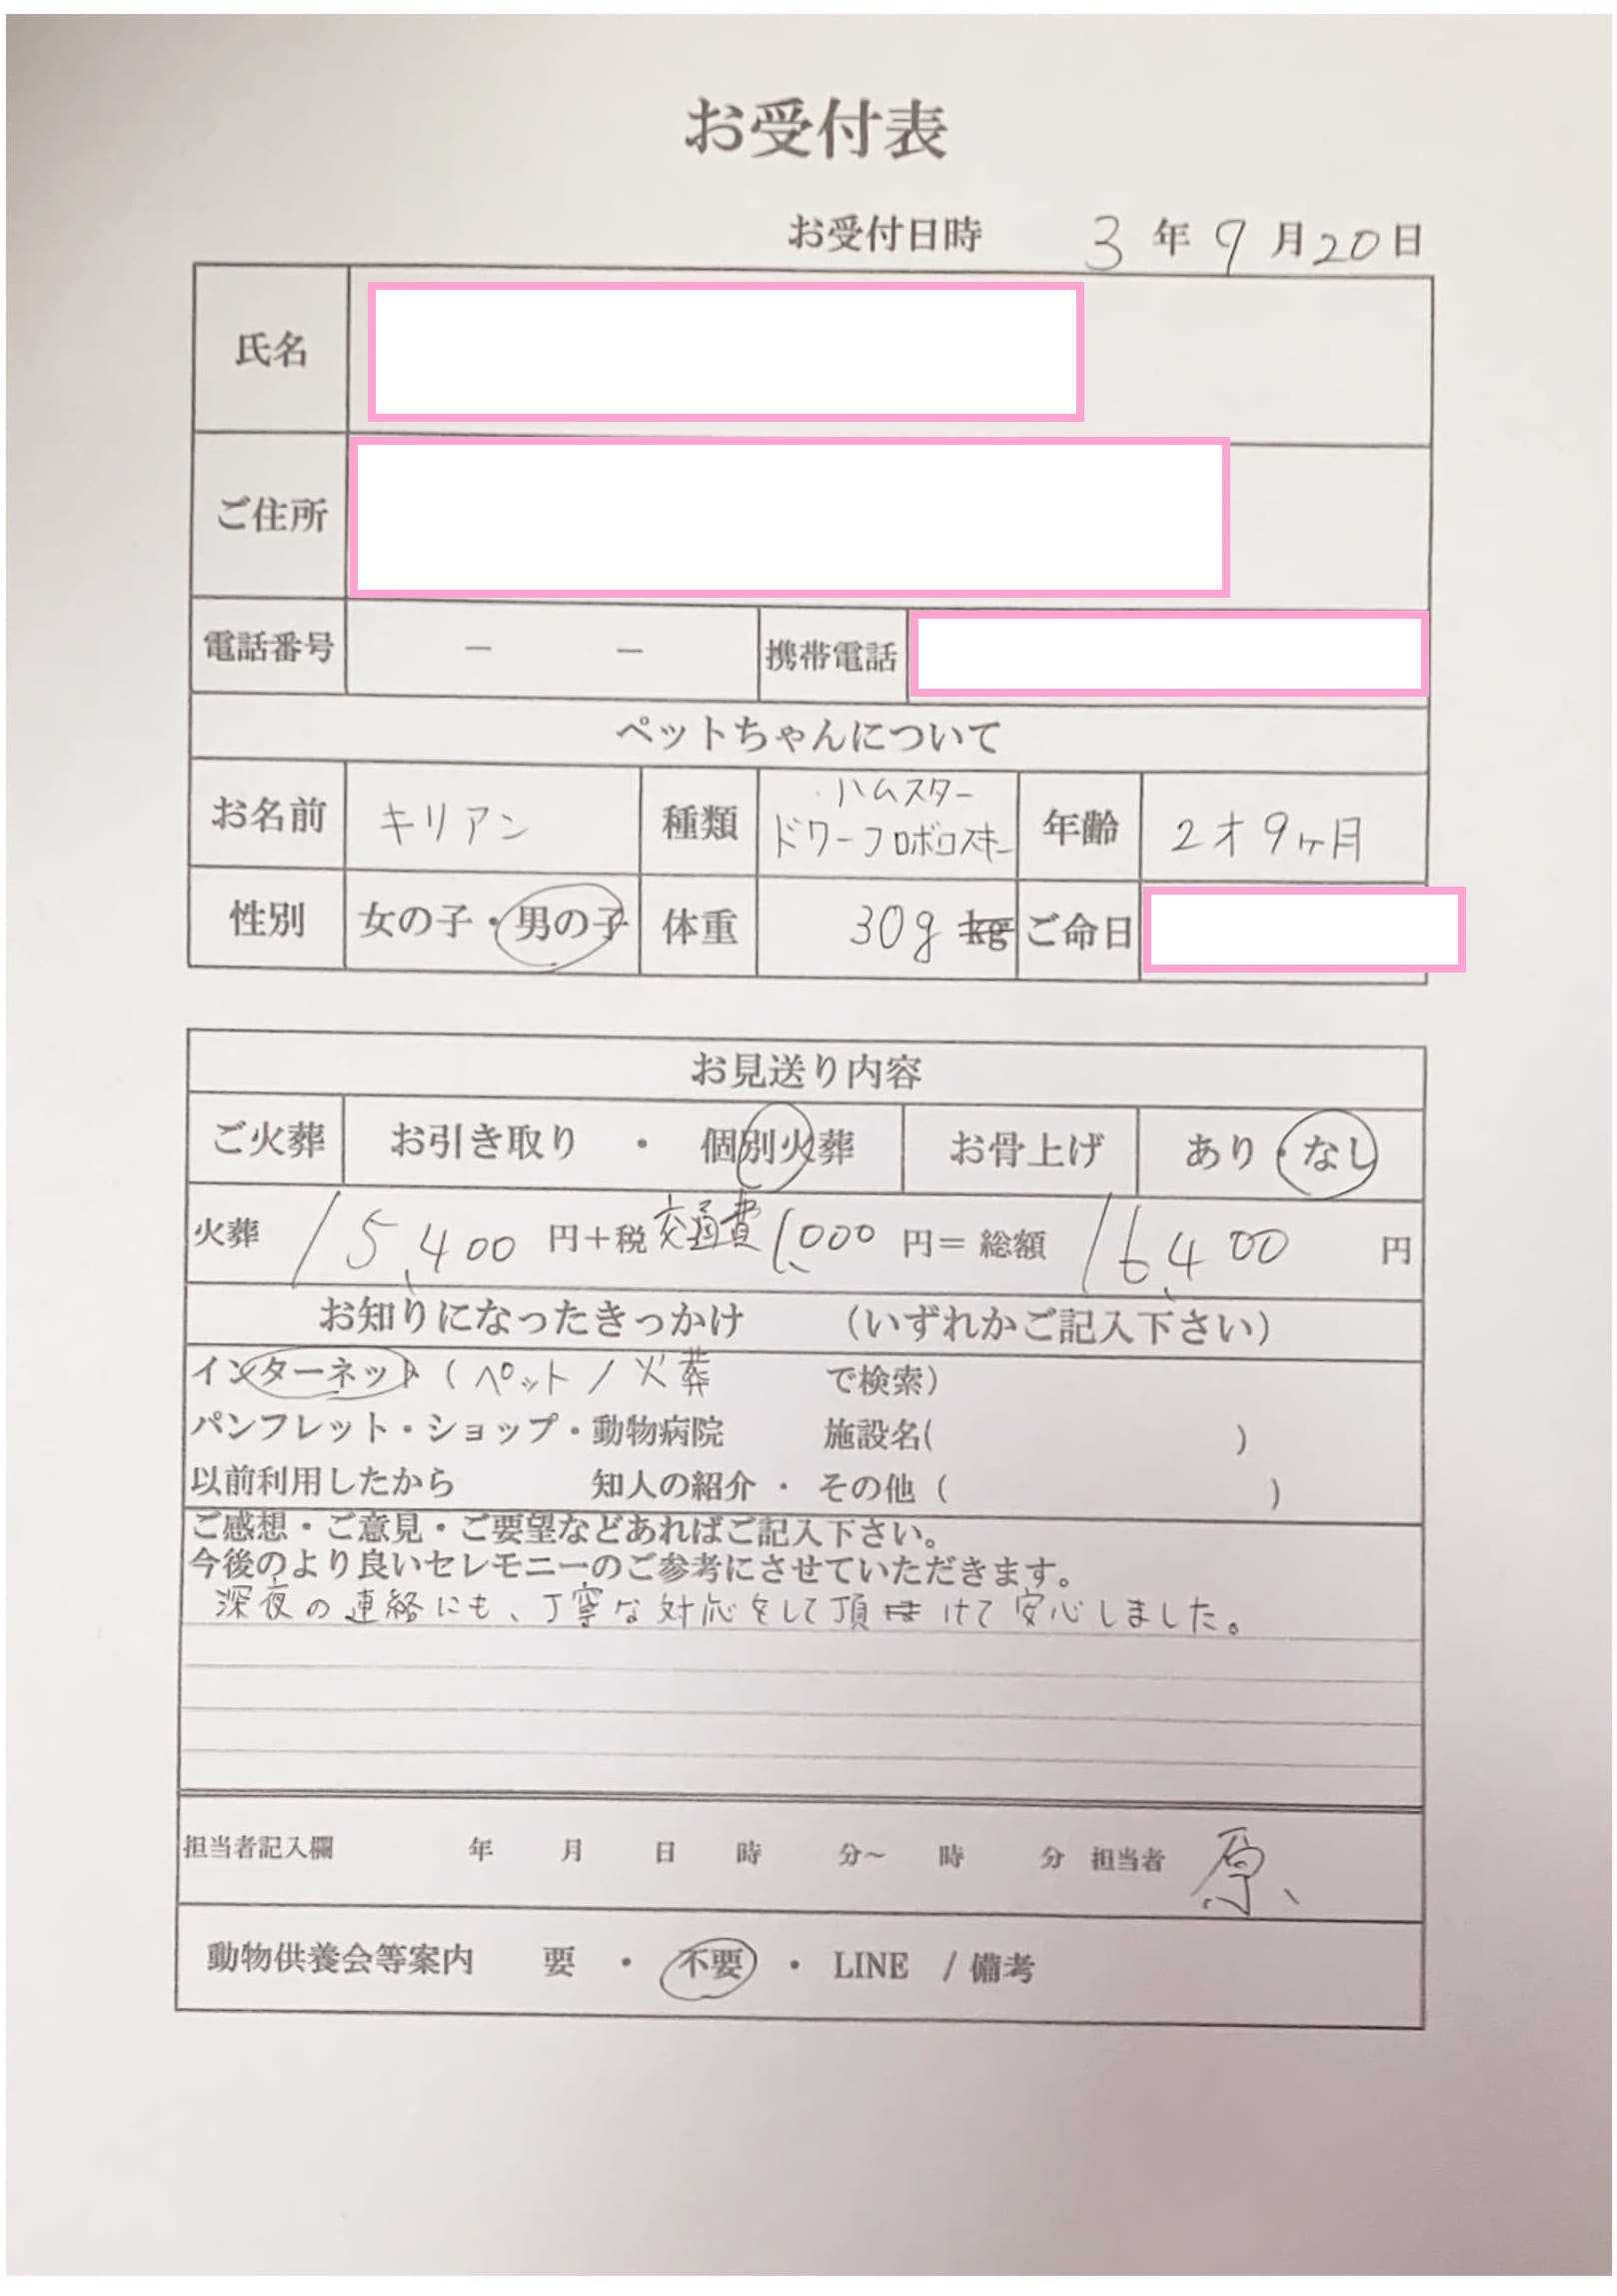 お受付表
お受付日時 3年9月20日
氏名
ご住所
電話番号 － － 携帯電話
ペットちゃんについて
お名前 キリアン 種類 ハムスター ドワーフロボロスキー 年齢 2才9ヶ月
性別 女の子・男の子 体重 30g kg ご命日
お見送り内容
ご火葬 お引き取り ・ 個別火葬 お骨上げ あり・なし
火葬 15,400 円＋税 交通費 1,000 円＝ 総額 16,400 円
お知りになったきっかけ （いずれかご記入下さい）
インターネット（ペット/火葬 で検索）
パンフレット・ショップ・動物病院 施設名( )
以前利用したから 知人の紹介 ・ その他（ ）
ご感想・ご意見・ご要望などあればご記入下さい。
今後のより良いセレモニーのご参考にさせていただきます。
深夜の連絡にも、丁寧な対応をして頂けて安心しました。
担当者記入欄 年 月 日 時 分～ 時 分 担当者 原
動物供養会等案内 要 ・ 不要 ・ LINE / 備考